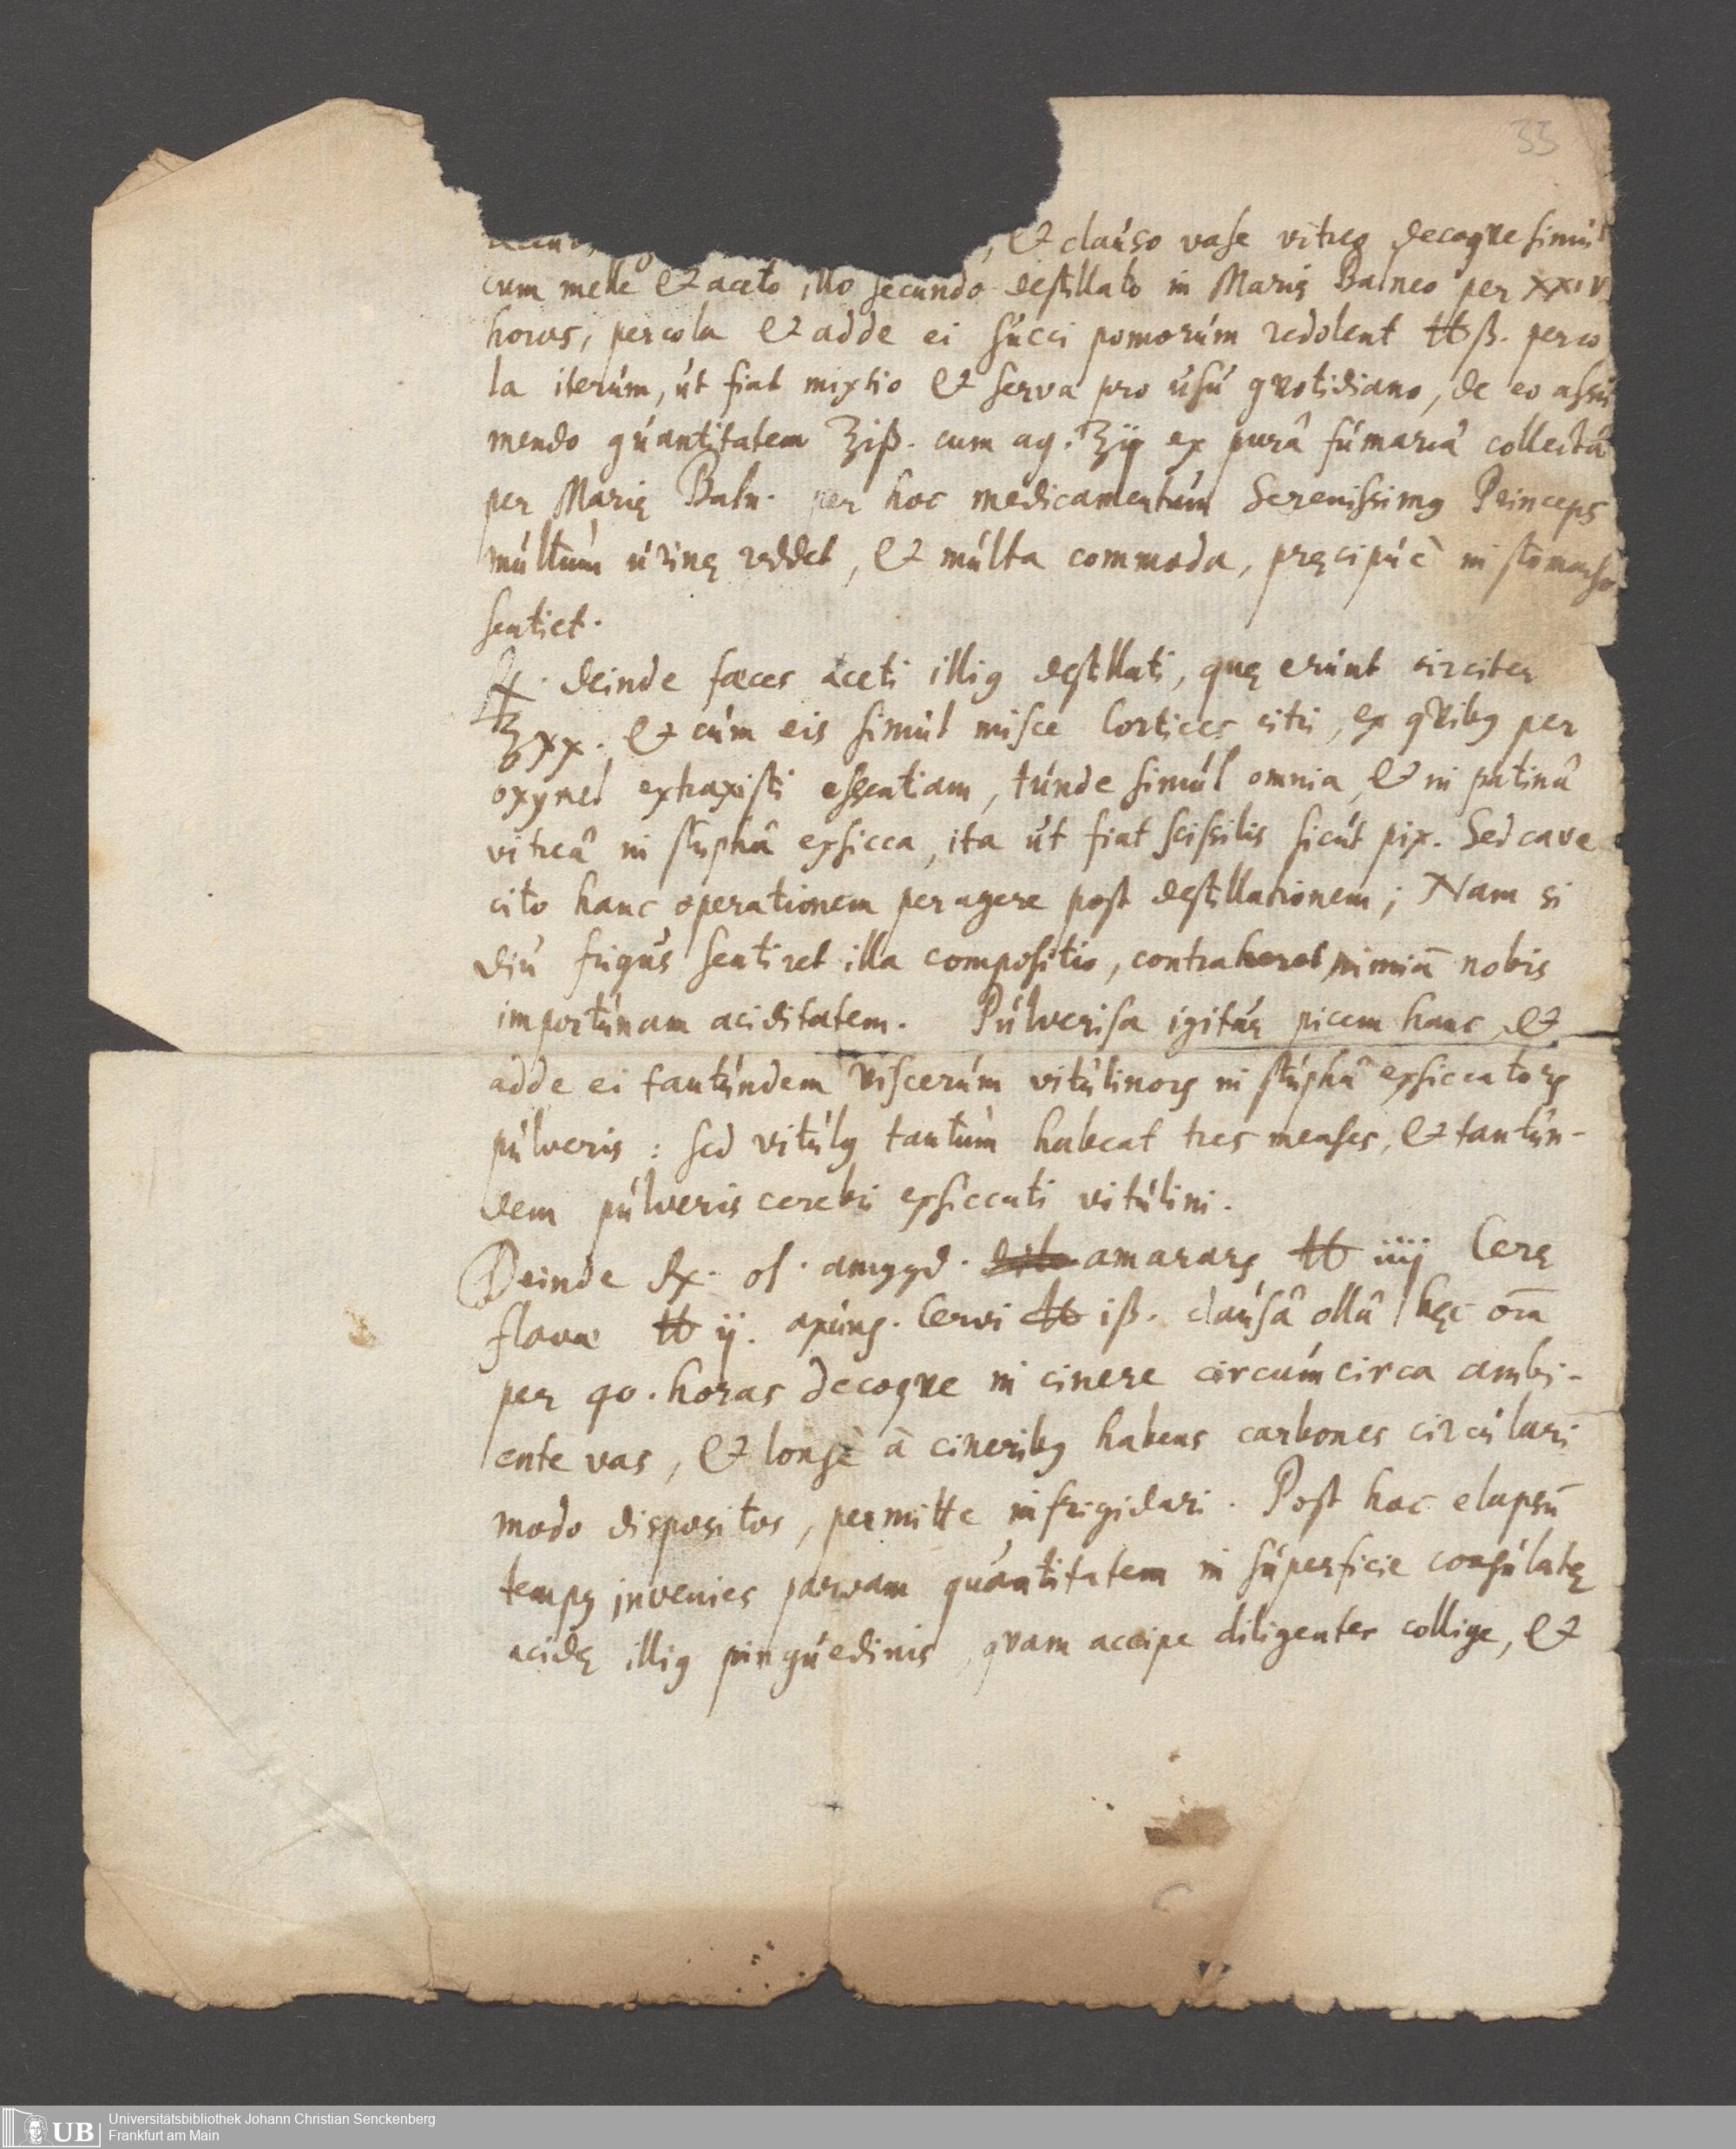 33
, & clauso vase vitreo decoqve simul
cum melle & aceto illo secundo destillato in Marię Balneo per XXIV
horas, percola & adde ei súcci pomorúm redolent ℔ß. perco
la iterúm, út fiat mixtio & serva pro úsú qvotidiano, de eo assú
mendo qúantitatem ℥iß. cum aq. ℥ij ex purâ fúmariâ collectâ
per Marię Baln. per hoc medicamentúm Serenissimꝰ Princeps
múltúm úrinę reddet, & múlta commoda, pręcipúè in stomacho
sentiet.
℞. deinde fæces aceti illiꝰ destillati, quę erúnt circiter
℥xx. & cúm eis simúl misce Cortices citri, ex qvibꝰ per
oxymel extraxisti essentiam, túnde simúl omnia, & in patinâ
vitreâ in stuphâ exsicca, ita út fiat scissilis sicút pix. Sed cave
cito hanc operationem peragere post destillationem; Nam si
diú frigús sentiret illa compositio, contraheret nimiā nobis
importúnam aciditatem. Púlverisa igitúr picem hanc, &
adde ei tantúndem viscerúm vitúlinoꝝ in stúphâ exsiccatoꝝ
púlveris: sed vitúlꝰ tantúm habeat tres menses, & tantún-
dem púlveris cerebri exsiccati vitúlini.
Deinde ℞. ol. amygd. amararꝝ ℔ iiij Cerę
flavæ ℔ ij. axúng. Cervi ℔ iß. claúsâ ollâ hęc oīa
per 40. horas decoqve in cinere circúmcirca ambi-
ente vas, & longè à cineribꝰ habens carbones circúlari
modo dispositos, permitte infrigidari. Post hoc elapsū
tempꝰ invenies parvam quántitatem in súperficie coagúlatę
acidę illiꝰ pingúedinis, qvam accipe diligenter collige, &
UB
Universitätsbibliothek Johann Christian Senckenberg
Frankfurt am Main